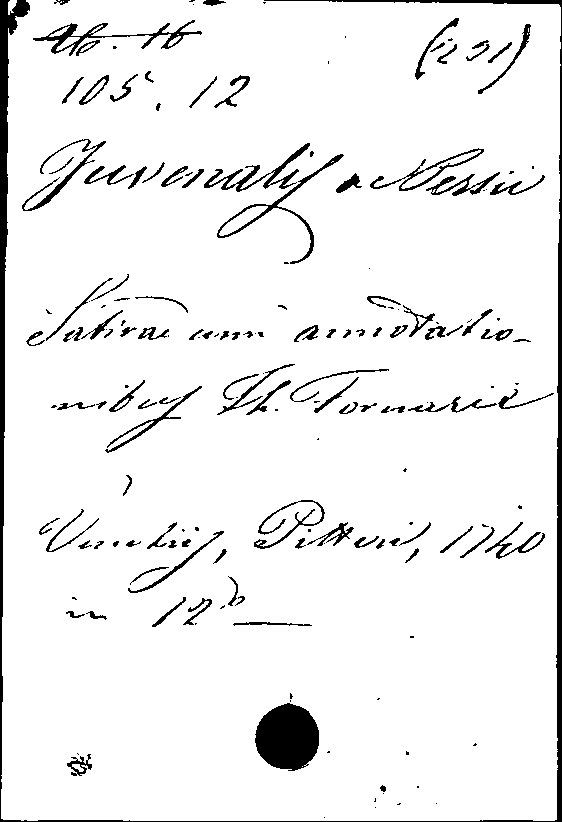 105. 12
Juvenalis a Persii
Satirae cum annotatio-
nibus Th. Fornarii
Venetiis, Pitteri, 1740
in 12º